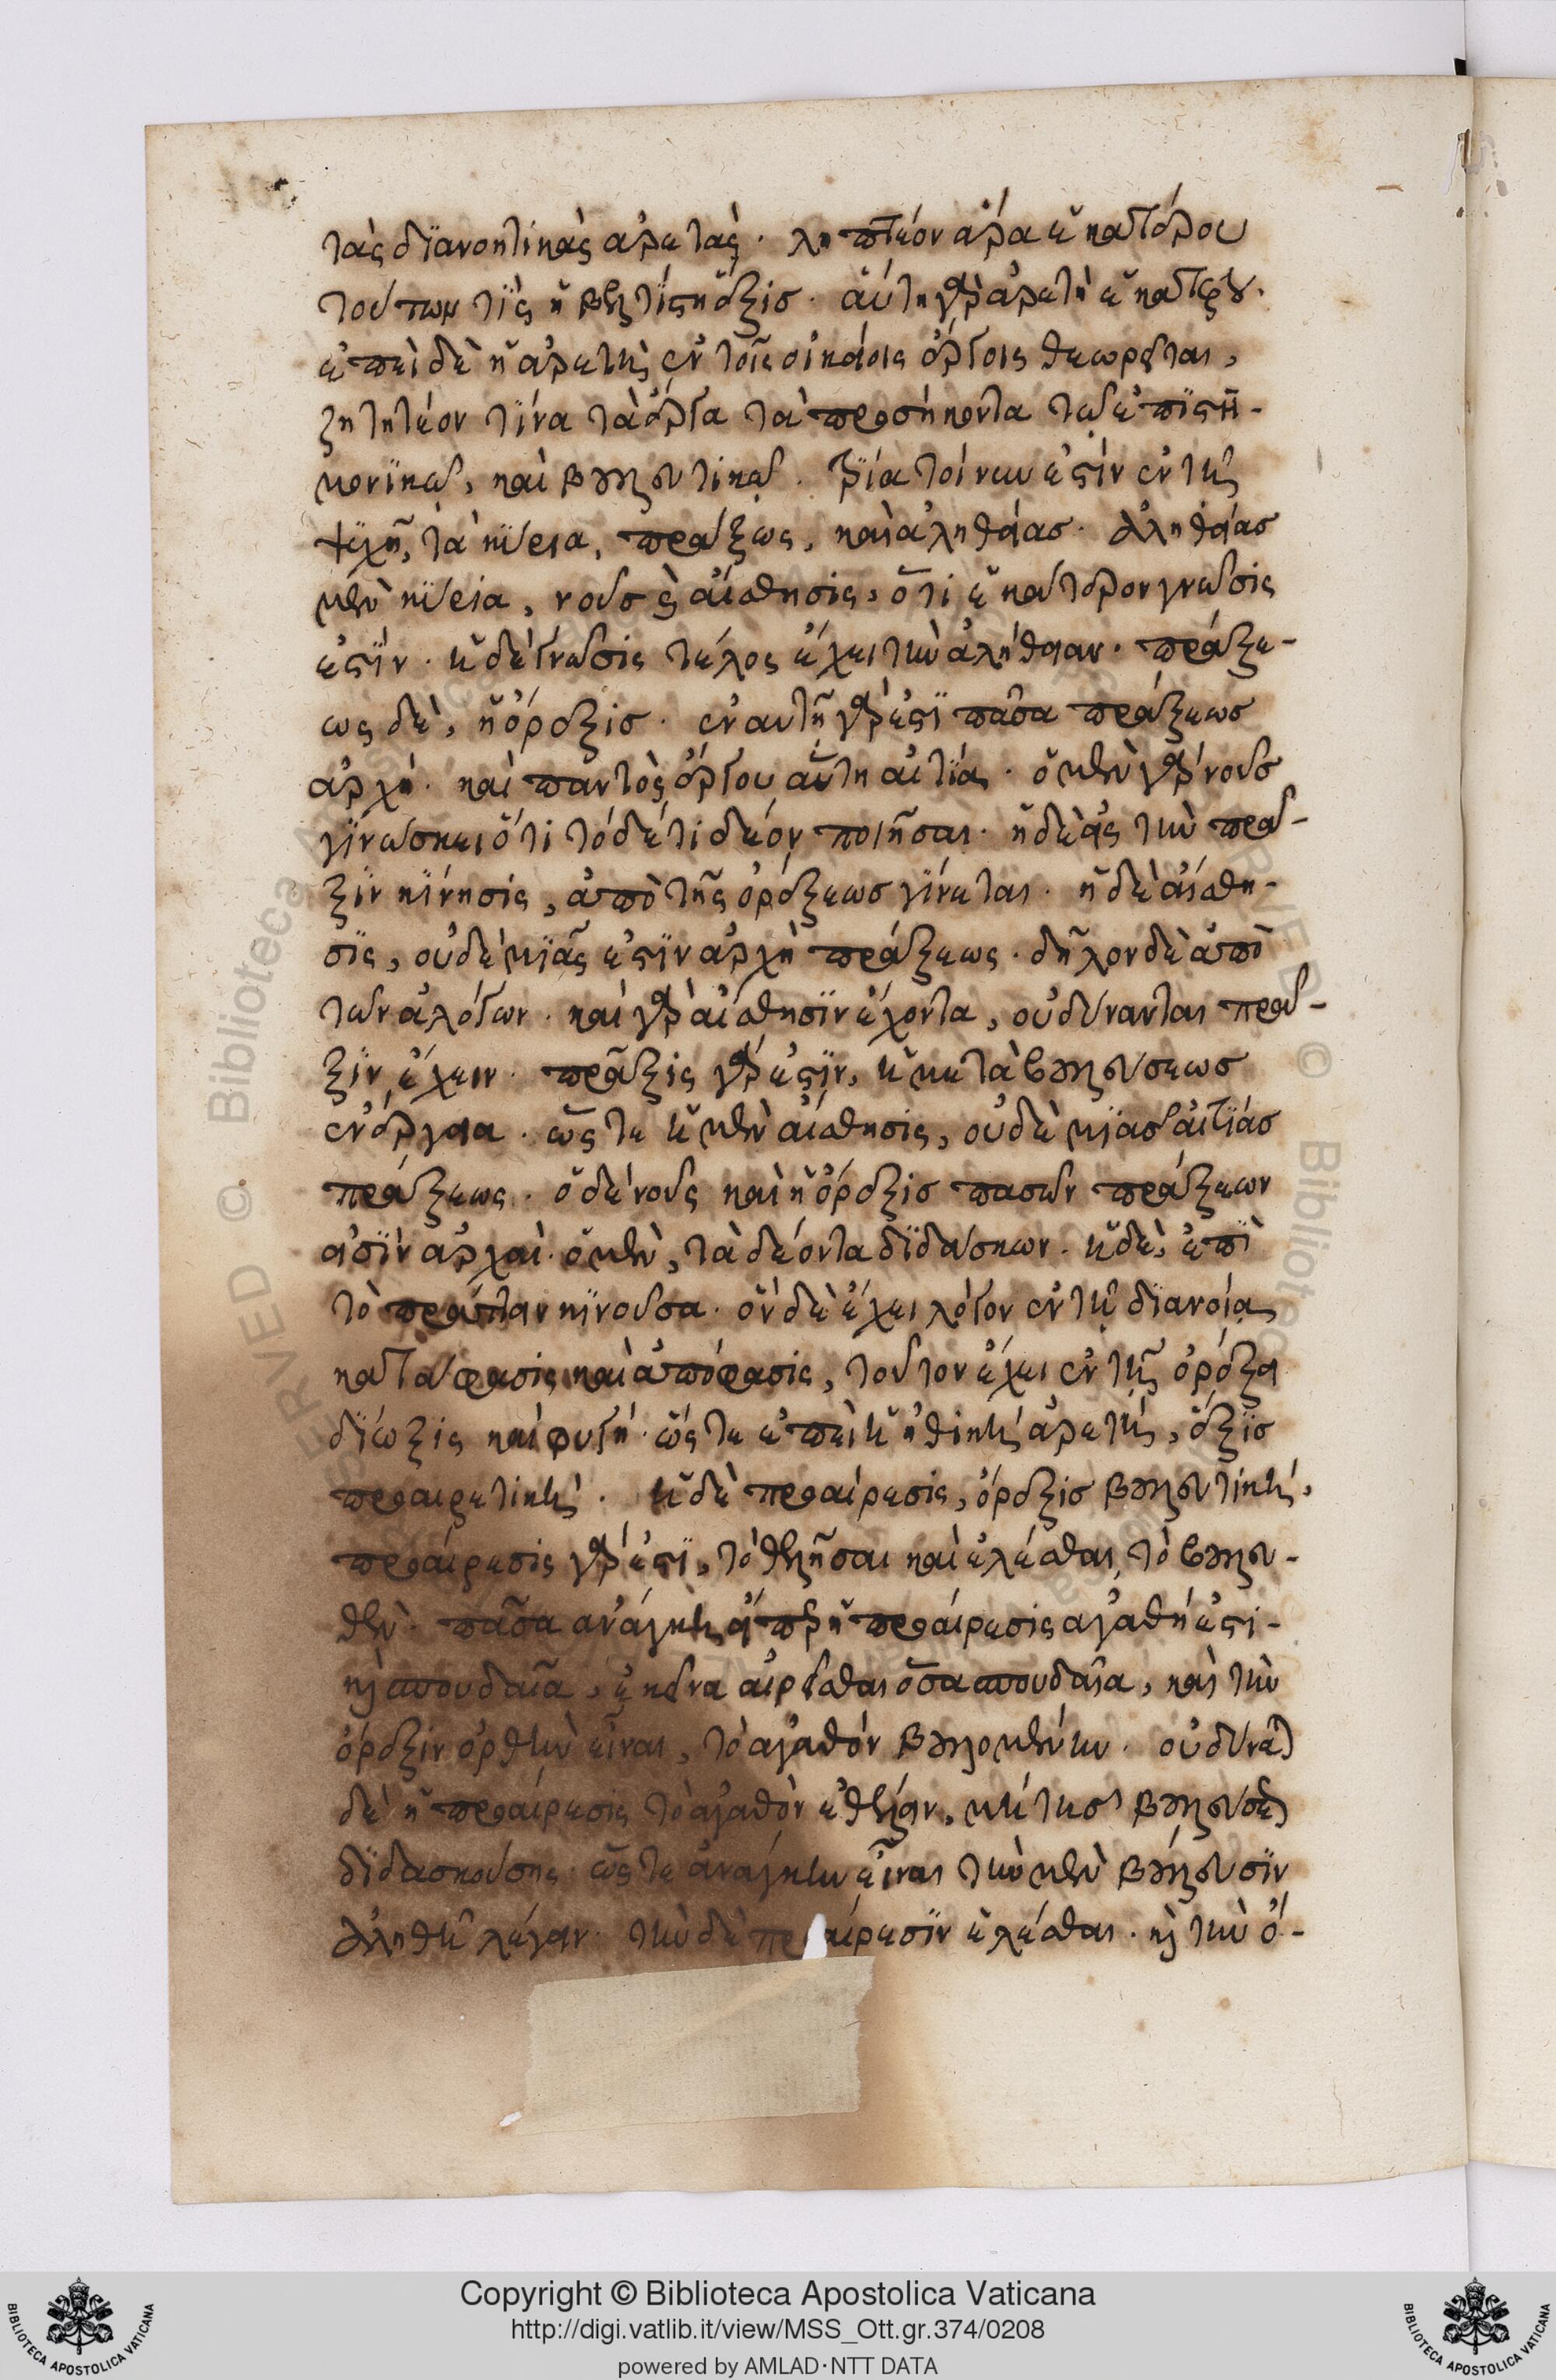 τὰς διανοητικὰς ἀρετάς. ληπτέον ἄρα ἑκατέρου
τούτων τίς ἡ βελτίστη ἕξις. αὕτη γὰρ ἀρετὴ ἑκατέρου.
ἐπεὶ δὲ ἡ ἀρετὴ ἐν τοῖς οἰκείοις ἔργοις θεωρεῖται,
ζητητέον τίνα τὰ ἔργα τὰ προσήκοντα τῷ ἐπιστη-
μονικῷ, καὶ βουλευτικῷ. τρία τοίνυν ἐστὶν ἐν τῇ
ψυχῇ, τὰ κύρια, πράξεως, καὶ ἀληθείας. ἀληθείας
μὲν κύρια, νοῦς καὶ αἴσθησις, ὅτι ἑκάτερον γνῶσις
ἐστίν. ἡ δὲ γνῶσις τέλος ἔχει τὴν ἀλήθειαν. πράξε-
ως δὲ, ἡ ὄρεξις. ἐν αυτῇ γάρ ἐστι πᾶσα πράξεως
ἀρχή. καὶ παντὸς ἔργου αὕτη αἰτία. ὁ μὲν γὰρ νοῦς
γινώσκει ὅτι τόδέ τι δέον ποιῆσαι. ἡ δὲ εἰς τὴν πρᾶ-
ξιν κίνησις, ἀπὸ τῆς ὀρέξεως γίνεται. ἡ δὲ αἴσθη-
σις, οὐδεμιᾶς ἐστὶν ἀρχὴ πράξεως. δῆλον δὲ ἀπὸ
τῶν ἀλόγων. καὶ γὰρ αἴσθησιν ἔχοντα, οὐ δύνανται πρᾶ-
ξιν ἔχειν. πρᾶξις γάρ ἐστιν, ἡ μετὰ βουλεύσεως
ἐνέργεια. ὥστε ἡ μὲν αἴσθησις, οὐδεμιᾶς αἰτίας
πράξεως. ὁ δὲ νοῦς καὶ ἡ ὄρεξις πασῶν πράξεων
εἰσὶν ἀρχαί. ὁ μὲν, τὰ δέοντα διδάσκων. ἡ δὲ, ἐπὶ
τὸ πράττειν κινοῦσα. ὃν δὲ ἔχει λόγον ἐν τῇ διανοίᾳ
κατάφασις καὶ ἀπόφασις, τοῦτον ἔχει ἐν τῇ ὀρέξει
δίωξις καὶ φυγή. ὥστε ἐπεὶ ἡ ἠθικὴ ἀρετὴ, ἕξις
προαιρετική. ἡ δὲ προαίρεσις, ὄρεξις βουλευτική,
προαίρεσις γάρ ἐστι, τὸ ζητῆσαι καὶ ἑλέσθαι τὸ βουλευ-
θέν. πᾶσα ἀνάγκη εἴπερ ἡ προαίρεσις ἀγαθή ἐστι
καὶ σπουδαῖα, ἐκεῖνα αἱρεῖσθαι ὅσα σπουδαῖα, καὶ τὴν
ὄρεξιν ὀρθὴν εἶναι, τὸ ἀγαθόν βουλομένην. οὐ δύναται
δὲ ἡ προαίρεσις τὸ ἀγαθὸν ἐθέλειν, μὴ τῆς βουλεύσεως
διδασκούσης. ὥστε ἀνάγκη εἶναι τὴν μὲν βούλευσιν
ἀληθῆ λέγειν. τὴν δὲ προαίρεσιν ἑλέσθαι. καὶ τὴν ὄ-
Copyright © Biblioteca Apostolica Vaticana
http://digi.vatlib.it/view/MSS_Ott.gr.374/0208
powered by AMLAD·NTT DATA